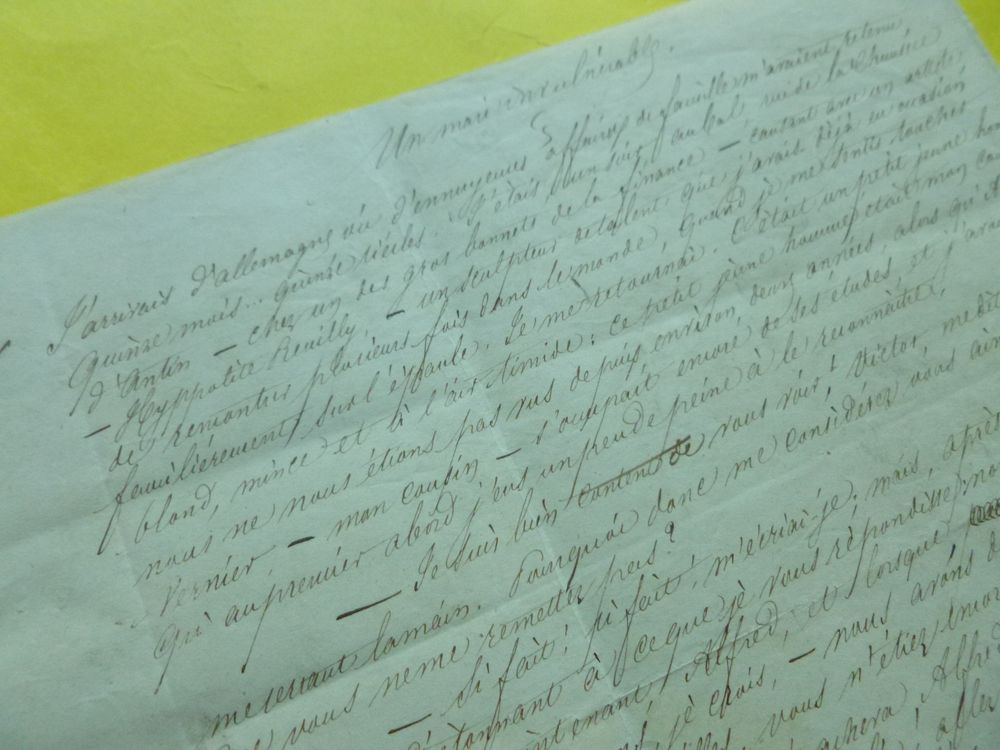 Un mari invulnérable.
J'arrivais d'allemagne où d'ennuyeuses affaires de famille m'avaient retenu
Quinze mois... quinze siècles. J'étais un soir au bal, rue de la Chaussée
d'Antin — chez un des gros bonnets de la finance — causant avec un artiste
— Hyppolite Reuilly, — un sculpteur de talent que j'avais déjà eu occasion
de remontrer plusieurs fois dans le monde, quand je me sentis toucher
familièrement sur l'épaule. Je me retournai. C'était un petit jeune hom
blond, mince et à l'air timide: ce petit jeune homme était mon cou
nous ne nous étions pas vus depuis environ deux années, alors qu'il
Vernier, — mon cousin — s'occupait encore de ses études, et j'ava
qu'au premier abord j'eus un peu de peine à le reconnaître,
— Je suis bien content de vous voir, Victor, me di
me serrant la main. Pourquoi donc me considérez vous ain
vous ne me remettez pas?
— Si fait! si fait! m'écriai-je, mais, après
étonnant à ce que je vous répondisse
maintenant, Alfred, et lorsque
je crois, — nous avons d
vous n'étiez encore
Alfre
aller